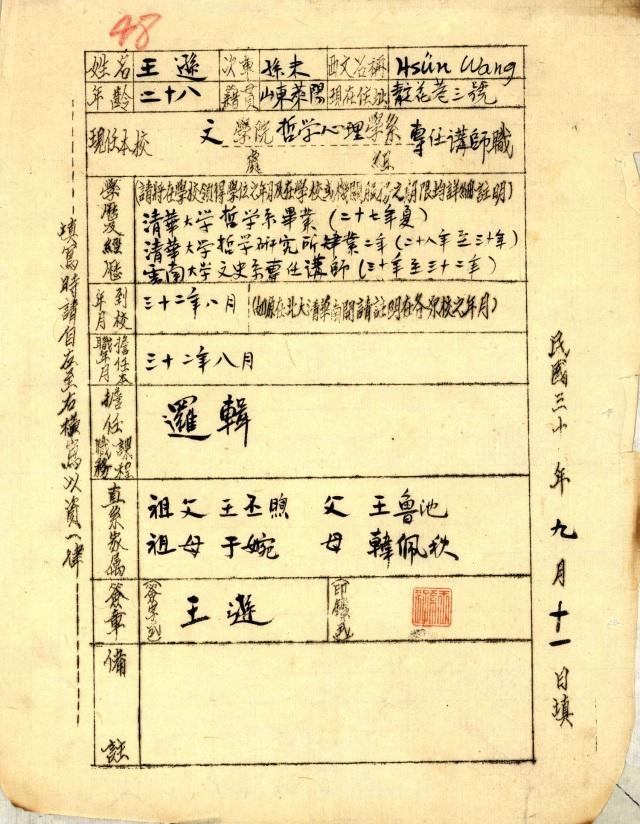 48
姓名 王遜 次章 孫未 西文名稱 Hsün Wang
年齡 二十八 籍貫 山東萊陽 現在住址 靛花巷三號
現任本校 文學院哲学心理學系專任講師職
處 組
學歷及經歷 (請將在學校領得學位之年月及在學校或機關服務之期限均詳細註明)
清華大学哲学系畢業(二十七年夏)
清華大学哲学研究所肄業二年(二十八年至三十年)
雲南大学文史系專任講師(三十年至三十二年)
到校年月 三十二年八月 (如原在北大清華南開請註明在各原校之年月)
擔任本職年月 三十二年八月
擔任課程職務 邏輯
直系家屬 祖父 王丕煦 父 王魯池
祖母 于婉 母 韓佩秋
簽章 簽字式 王遜 印鑑式
備註
填寫時請自左至右橫寫以資一律
民國三十 年九月十一日填